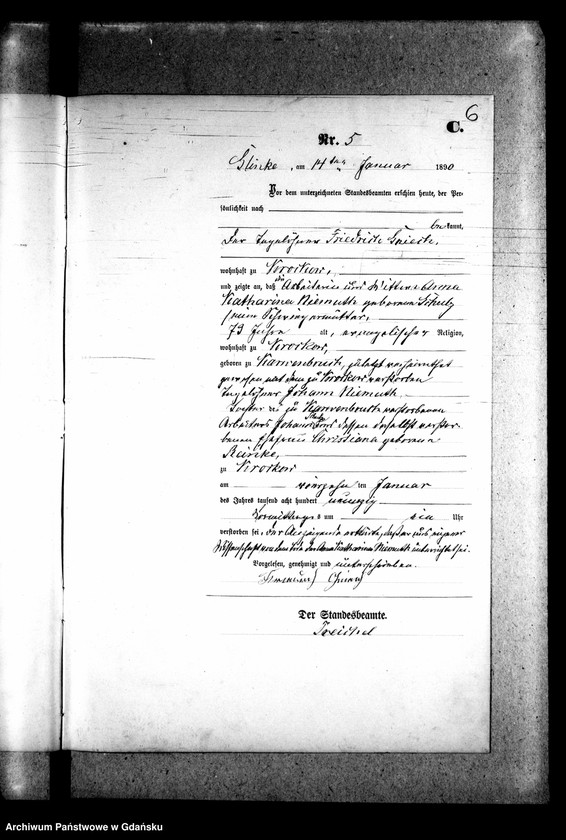 6
C.
Nr. 5
Glinke, am 14ten Januar 1890
Vor dem unterzeichneten Standesbeamten erschien heute, der Per-
sönlichkeit nach
bekannt,
Der Tagelöhner Friedrich
wohnhaft zu
und zeigte an, daß die Arbeiterin und Wittwe Anna
Katharina Niemuth geborene Schulz
seine Schwiegermutter,
73 Jahre alt, evangelischer Religion,
wohnhaft zu
geboren zu zuletzt verheirathet
gewesen mit dem zu verstorbenen
Tagelöhner Johann Niemuth,
Tochter des zu verstorbenen
Arbeiters Johann und dessen daselbst verstor-
benen Ehefrau Christiana geborenen
zu
am vierzehnten Januar
des Jahres tausend acht hundert neunzig
Vormittags um ein Uhr
verstorben sei, der Anzeigende erklärte, daß er aus eigener
Wissenschaft von dem Tode der Anna Katharina Niemuth unterrichtet sei.
Vorgelesen, genehmigt und unterschrieben.
Der Standesbeamte.
Treichel
Archiwum Państwowe w Gdańsku